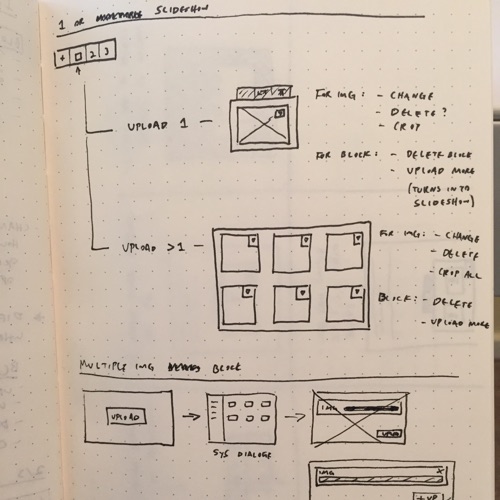 1 OR SLIDESHOW
+ 2 3
UPLOAD 1 —
FOR IMG: - CHANGE
- DELETE?
- CROP
FOR BLOCK: - DELETE BLOCK
- UPLOAD MORE
(TURNS INTO
SLIDESHOW)
UPLOAD >1 —
FOR IMG: - CHANGE
- DELETE
- CROP ALL
BLOCK: - DELETE
- UPLOAD MORE
MULTIPLE IMG BLOCK
UPLOAD
SYS DIALOGE
IMG
IMG X
+ UP